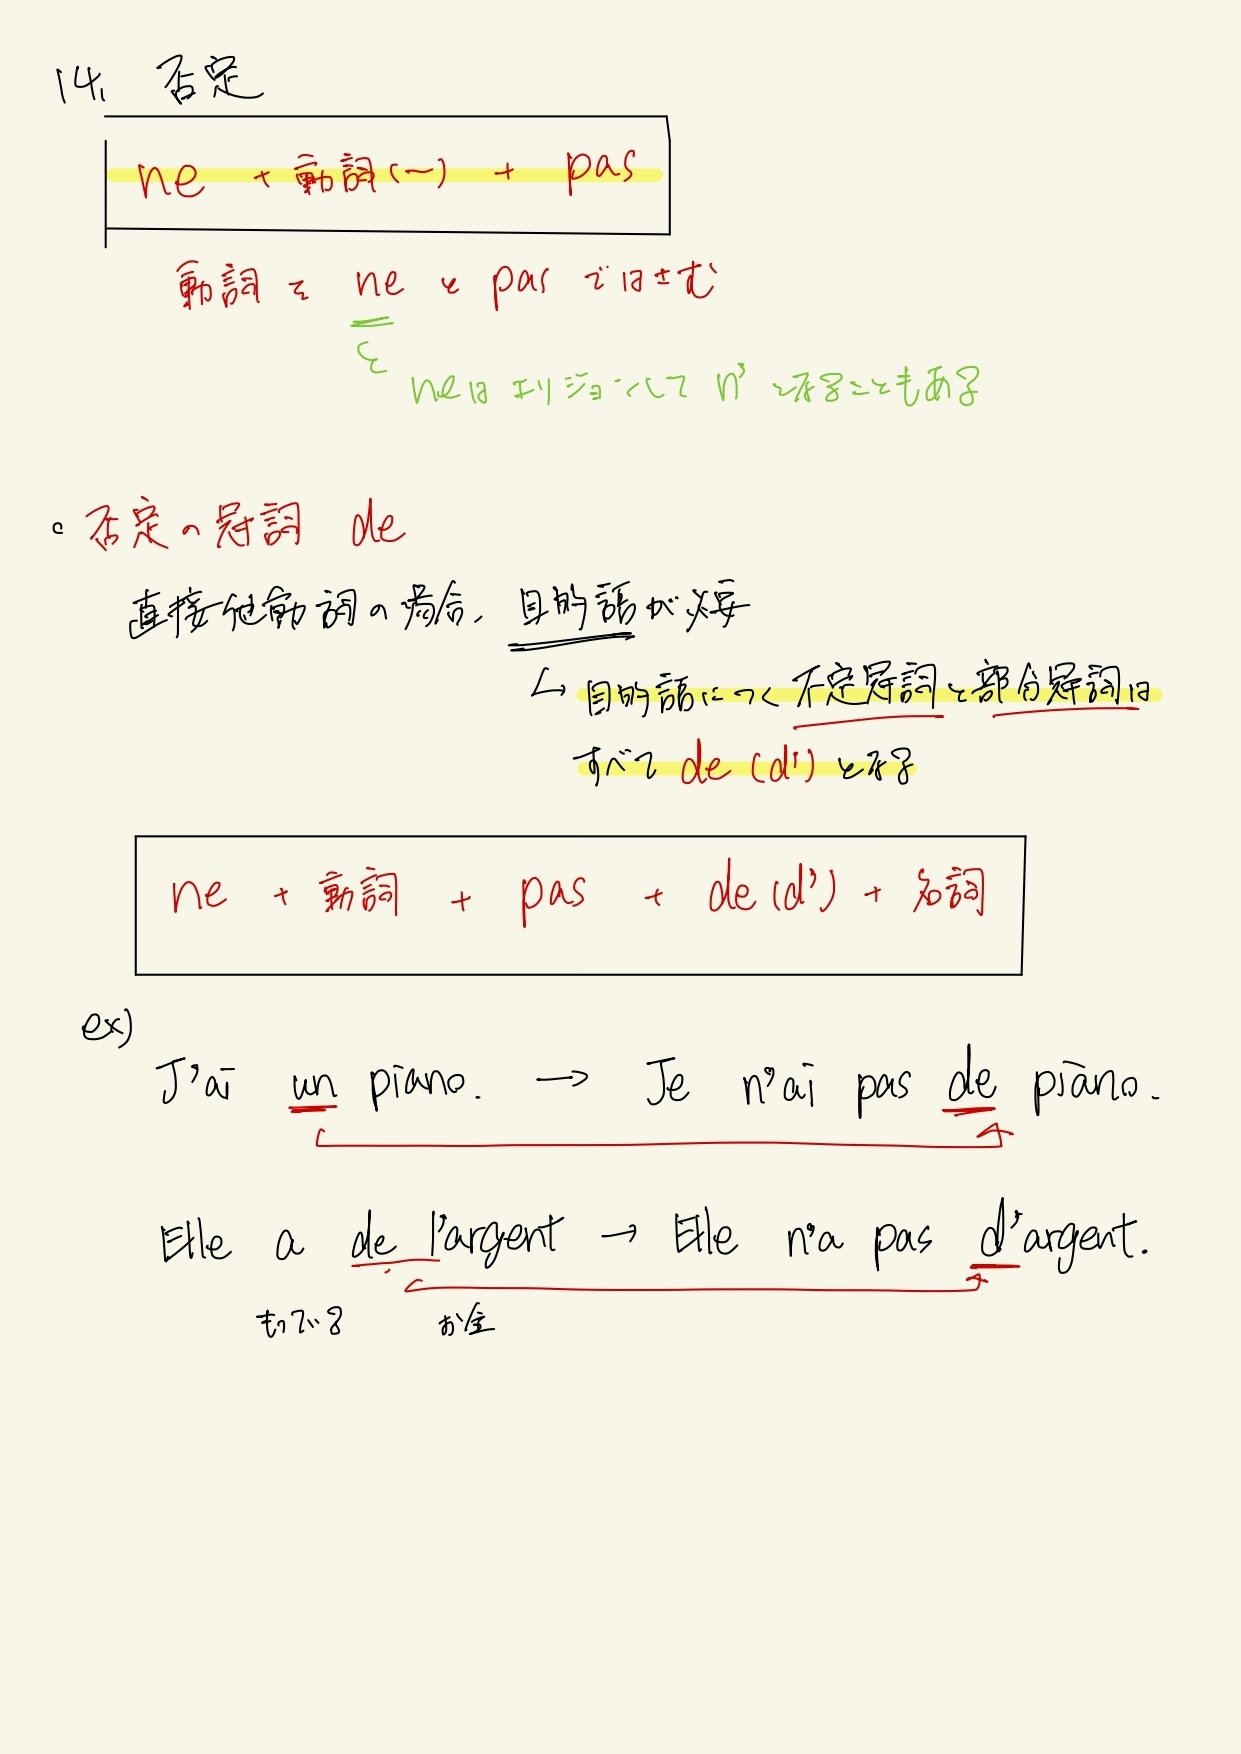 14, 否定
ne + 動詞(〜) + pas
動詞を ne と pas ではさむ
neはエリジョンして n' となることもある
。否定の冠詞 de
直接他動詞の場合、目的語が必要
↳ 目的語につく不定冠詞と部分冠詞は
すべて de (d') となる
ne + 動詞 + pas + de (d') + 名詞
ex)
J'ai un piano. → Je n'ai pas de piano.
Elle a de l'argent → Elle n'a pas d'argent.
もっている お金